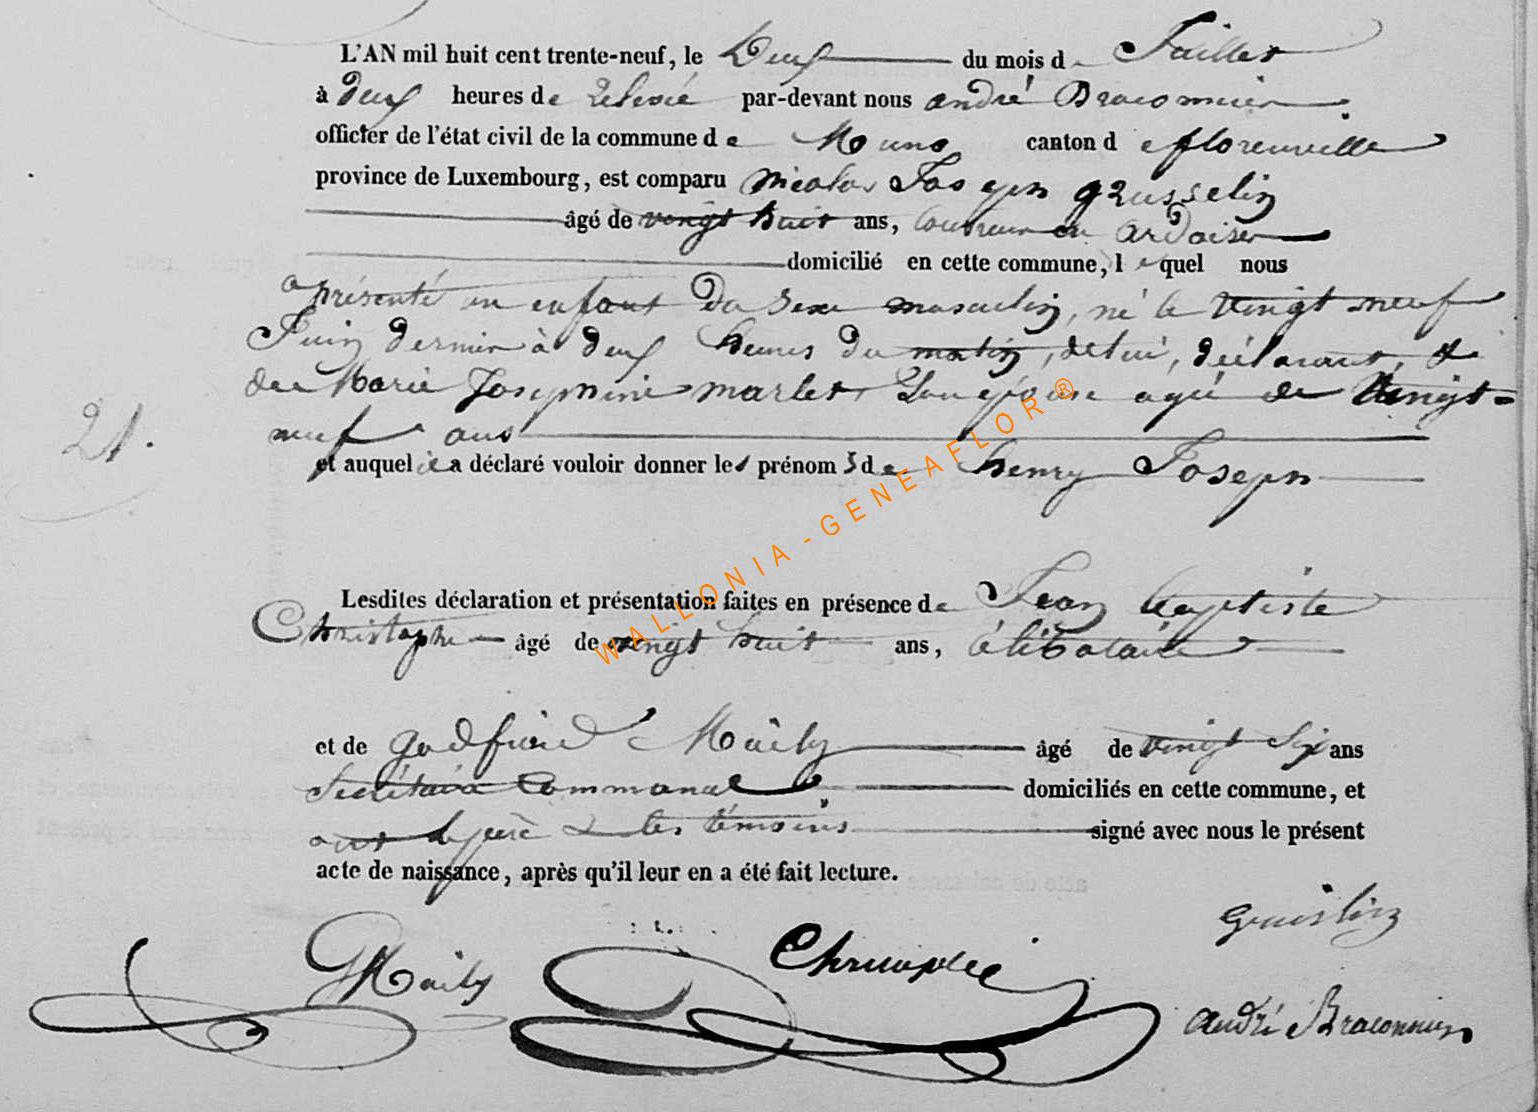 L'AN mil huit cent trente-neuf, le Deux du mois de Juillet
à deux heures de relevée par-devant nous andré Braconnier
officier de l'état civil de la commune de Muno canton de florenville
province de Luxembourg, est comparu Nicolas Joseph grusselin
âgé de vingt huit ans, couvreur en ardoises
domicilié en cette commune, lequel nous
a présenté un enfant du sexe masculin, né le vingt neuf
Juin dernier à deux heures du matin, de lui, déclarant, &
de Marie Josephine marlet, son épouse agée de vingt-
neuf ans
21.
et auquel il a déclaré vouloir donner les prénoms de henry Joseph
Lesdites déclaration et présentation faites en présence de Jean baptiste
Christophe âgé de vingt huit ans, célibataire
et de godfroid Maily âgé de vingt six ans
Secrétaire Communal domiciliés en cette commune, et
ont le père & les témoins signé avec nous le présent
acte de naissance, après qu'il leur en a été fait lecture.
WALLONIA - GENEAFLOR ®
Gruslin
GMaily Christophe
andré Braconnier